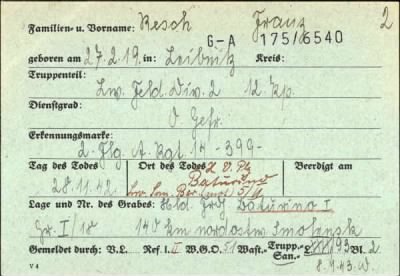 Familien- u. Vorname: Resch Franz 2
G-A 175/6540
geboren am 27.2.19. in: Leibnitz Kreis:
Truppenteil: Lw. Feld. Div. 2 12. Kp.
Dienstgrad: O. Gefr.
Erkennungsmarke: 2. Flg. A. Rgt. 14 -399-
Tag des Todes Ort des Todes Beerdigt am
28.11.42. Baturino
Lage und Nr. des Grabes: Hld. Frdh. Baturino I
Gr. I/18 140 km nordostw. Smolensk
Gemeldet durch: V.L. Ref. I. II W.G.O. 51 Wast.- Trupp.- San.- 93 Bl. 2
V 4 8.1.43.